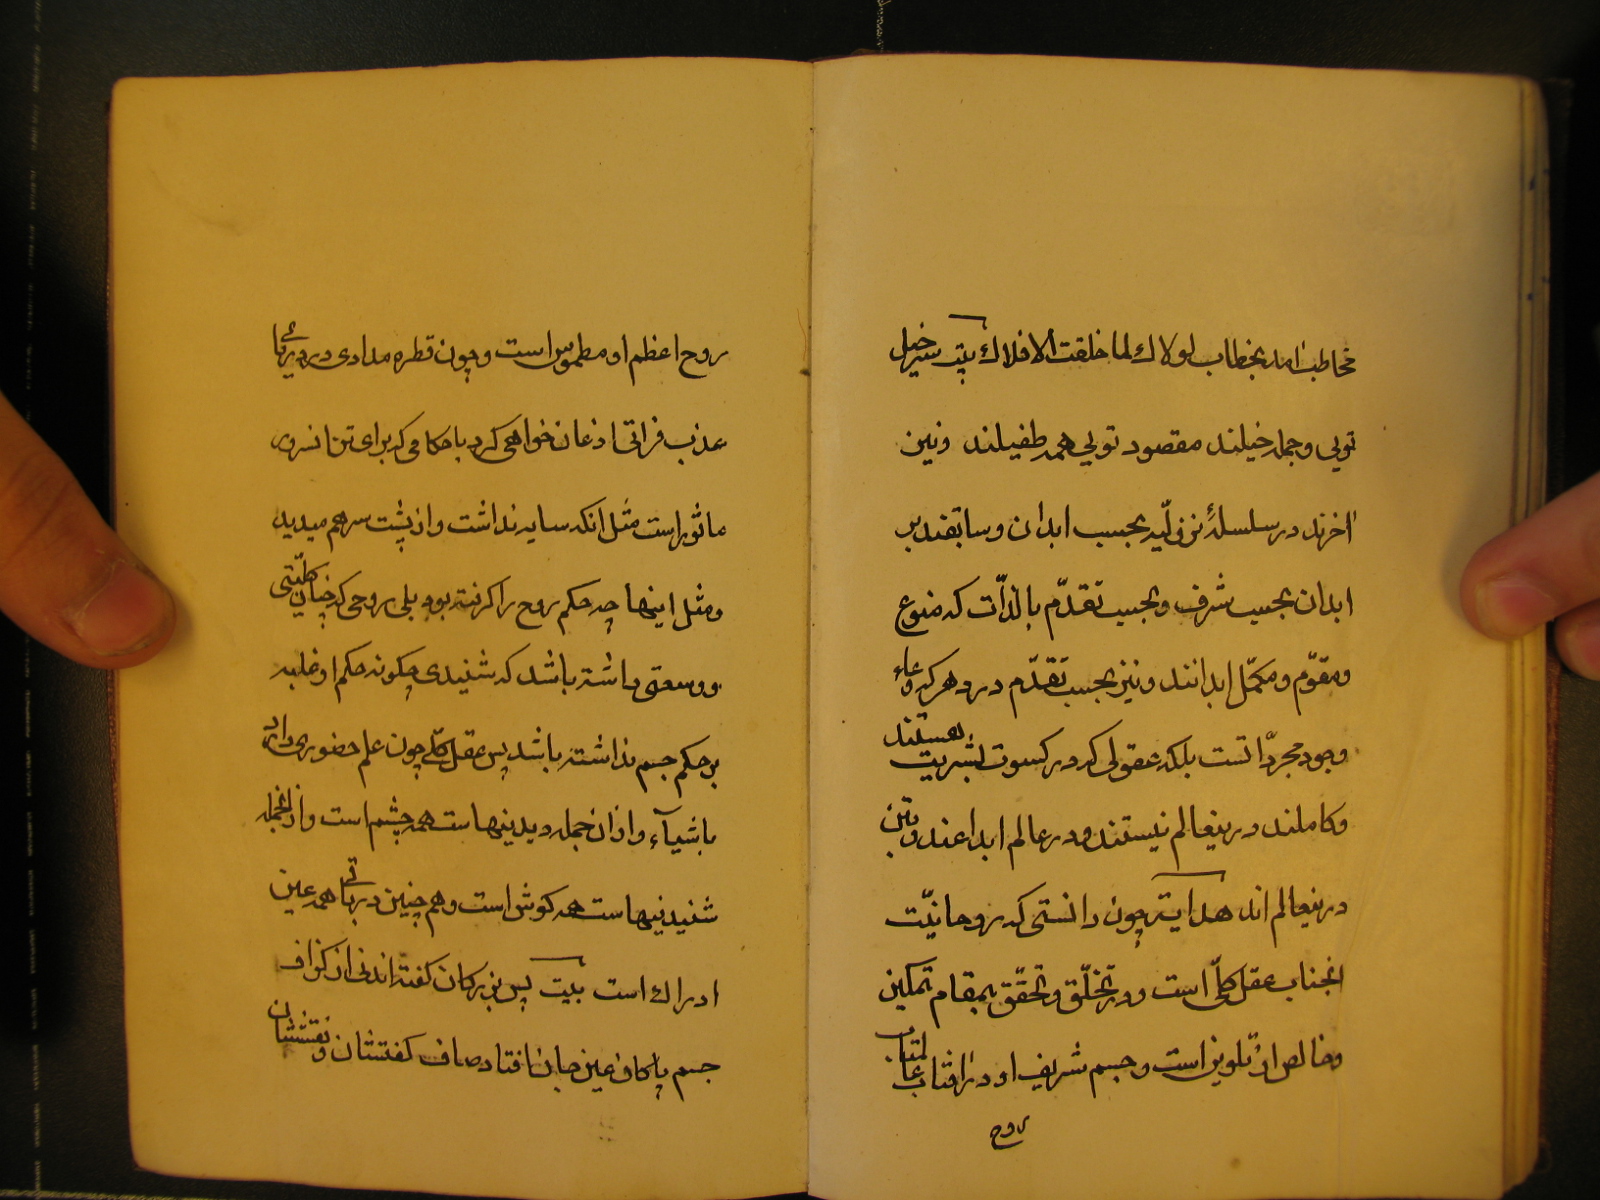 مخاطب آمد بخطاب لولاك لما خلقت الافلاك بیت سرخیل
تویی و جمله خیلند مقصود تویی همه طفیلند ونیز
آخرند در سلسلهٔ نزولیه بحسب ابدان و سابقند بر
ابدان بحسب شرف و بحسب تقدّم بالذّات که منوع
ومقوّم ومکمّل ابدانند ونیز بحسب تقدّم در دهر که وعاء
وجود مجرّداتست بلکه عقولی که در کسوت بشریت هستند
وکاملند درینعالم نیستند ودر عالم ابداعند وتن
درینعالم اند هدایة چون دانستی که روحانیّت
انجناب عقل کلّی است ودر تخلّق وتحقّق بمقام تمکین
وخالص از تلوین است وجسم شریف او در آفتاب عالمتاب
روح
روح اعظم او مطموس است وچون قطره مدادی در دریائی
عذب فراتی اذعان خواهی کرد باحکامی که برای تن آنسرور
ماثور است مثل آنکه سایه نداشت واز پشت سر هم میدید
ومثل اینها چه حکم روح را گرفته بود بلی روحی که چنان کلیّتی
ووسعتی داشته باشد که شنیدی چگونه حکم او غلبه
بر حکم جسم نداشته باشد پس عقل کلّی چون علم حضوری دارد
باشیآء واز آن جمله دیدنیهاست همه چشم است واز آنجمله
شنیدنیهاست همه گوش است وهم چنین در باقی همه عین
ادراك است بیت پس بزرگان گفته اند نی از گزاف
جسم پاکان عین جان افتاد صاف گفتشان ونقششان